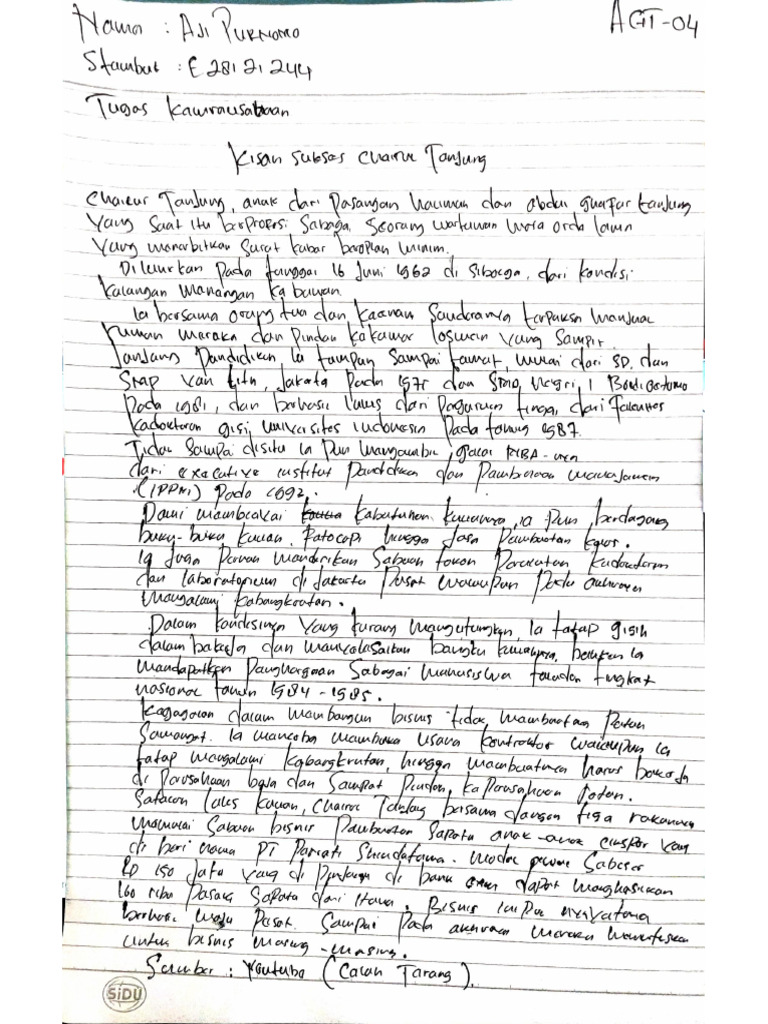 Nama : AJI PURNOMO
AGT-04
Stambuk : E 281 21 244
Tugas Kewirausahaan
Kisah Sukses Chairul Tanjung
Chairul Tanjung, anak dari Pasangan Halimah dan Abdul Ghafar tanjung
Yang Saat itu berprofesi Sebagai Seorang wartawan
Yang menerbitkan Surat kabar beroplah minim.
Dilahirkan Pada tanggal 16 Juni 1962 di Sibolga, dari kondisi
kalangan Menengah kebawah
Ia bersama orang tua dan keenam Saudaranya terpaksa Menjual
rumah mereka dan Pindah kekamar losmen yang Sempit.
Jenjang Pendidikan Ia tempuh Sampai tamat, mulai dari SD, dan
SMP Van Lith, Jakarta Pada 197 dan SMA Negri 1 Boedi Oetomo
Pada 1981, dan berhasil lulus dari Perguruan tinggi, dari Fakultas
kedokteran gigi Universitas Indonesia Pada tahun 1987.
Tidak Sampai disitu Ia Pun Mengambil gelar MBA-nya
dari executive institut Pendidikan dan Pembinaan manajemen
(IPPM) Pada 1992.
Demi membiayai kebutuhan kuliahnya, ia Pun, berdagang
buku-buku kuliah, Fotocopi hingga Jasa Pembuatan kaos.
Ia Juga Pernah Mendirikan Sebuah toko Peralatan Kedokteran
dan laboratorium di Jakarta Pusat walaupun Pada akhirnya
Mengalami kebangkrutan.
Dalam kondisinya Yang kurang Menguntungkan, Ia tetap gigih
dalam bekerja dan menyelesaikan bangku kuliahnya, bahkan Ia
Mendapatkan Penghargaan Sebagai Mahasiswa teladan tingkat
nasional tahun 1984-1985.
Kegagalan dalam Membangun bisnis tidak Membuatnya Patah
Semangat. Ia mencoba membuka usaha kontraktor walaupun Ia
tetap mengalami kebangkrutan, hingga membuatnya harus bekerja
di Perusahaan baja dan Sempat Pindah ke Perusahaan rotan.
Setelah lulus kuliah, Chairul Tanjung bersama dengan tiga rekannya
Memulai Sebuah bisnis Pembuatan Sepatu anak-anak ekspor yang
di beri nama PT Pariarti Shindutama. Modal Sebesar
Rp 150 Juta Yang di Pinjam di bank dapat menghasilkan
160 ribu Pasang Sepatu dari Italia. Bisnis
berhasil Maju Pesat. Sampai Pada akhirnya Mereka
untuk bisnis Masing-masing.
Sumber : Youtube (Calah Tarang).
SiDU